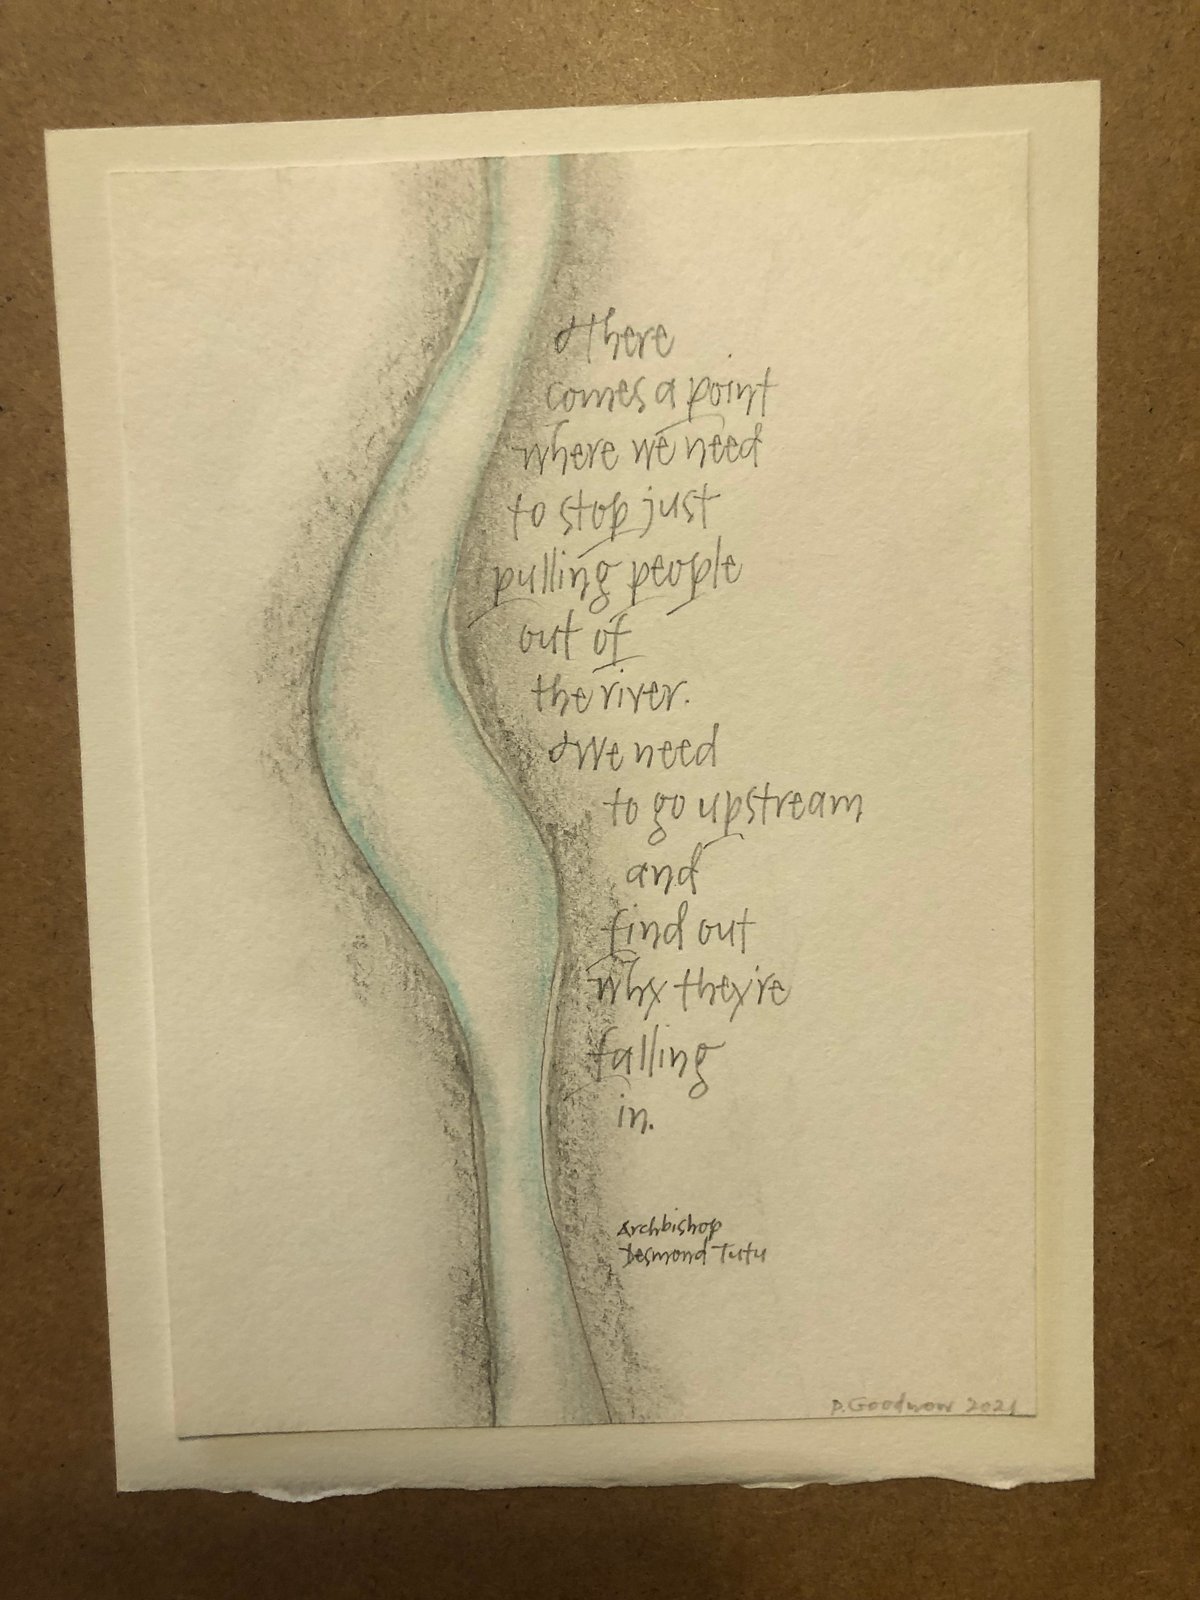 There
comes a point
where we need
to stop just
pulling people
out of
the river.
We need
to go upstream
and
find out
why they're
falling
in.
Archbishop
Desmond Tutu
D. Goodnow 2021